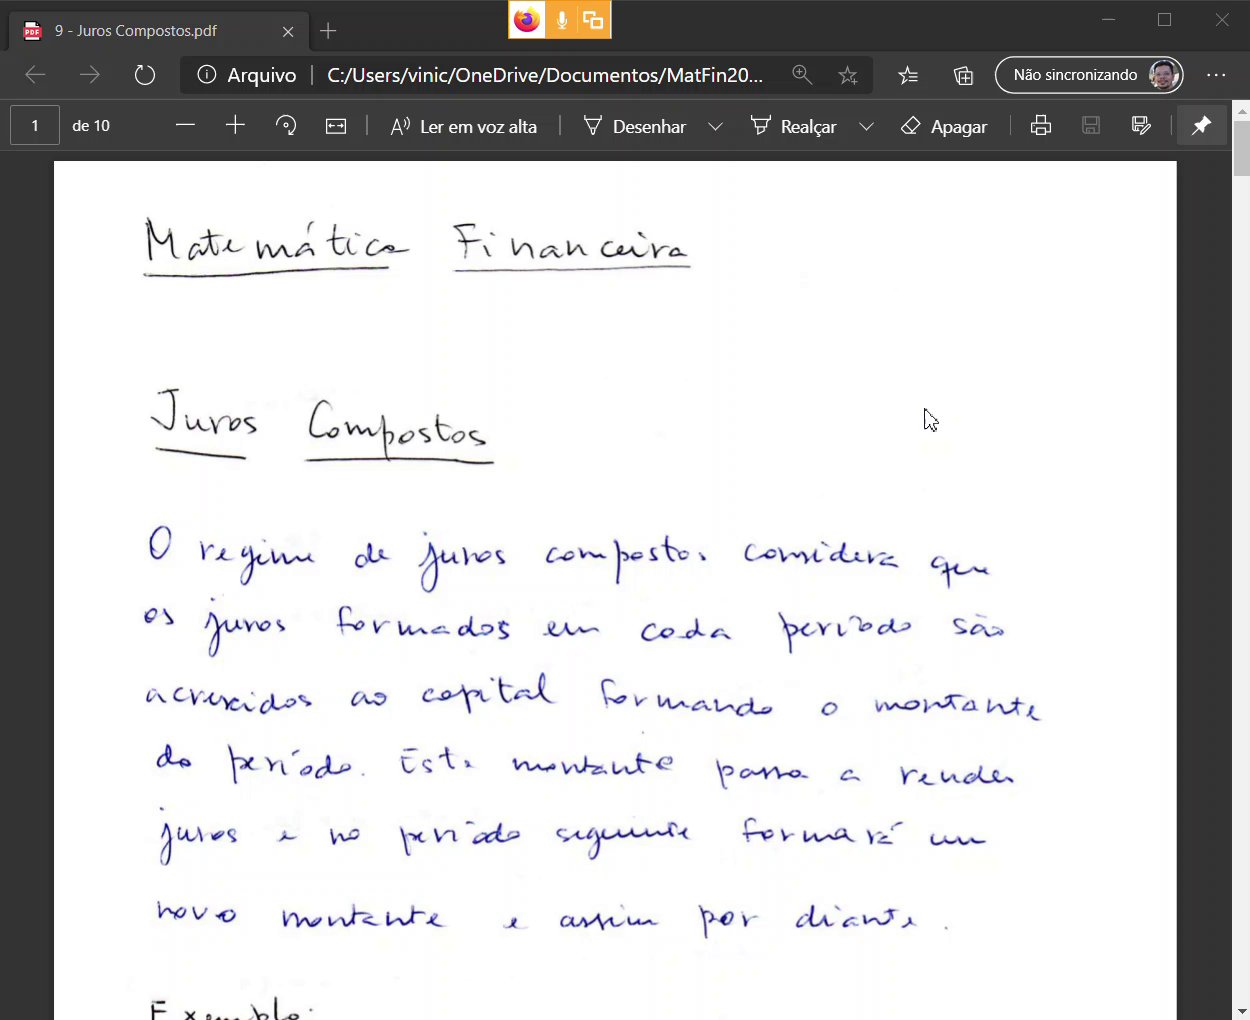 9 - Juros Compostos.pdf
Arquivo
C:/Users/vinic/OneDrive/Documentos/MatFin20...
Não sincronizando
1 de 10
Ler em voz alta
Desenhar
Realçar
Apagar
Matemática Financeira
Juros Compostos
O regime de juros compostos considera que
os juros formados em cada período são
acrescidos ao capital formando o montante
do período. Este montante passa a render
juros e no período seguinte formará um
novo montante e assim por diante.
Exemplo: